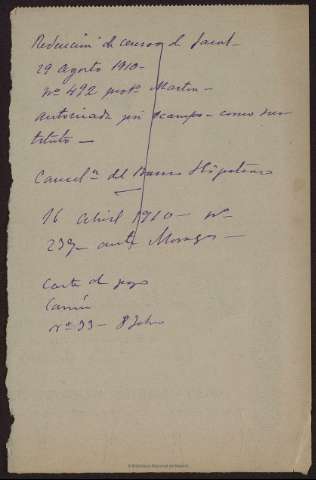 Redención de censos de
29 agosto 1910-
nº 492 protº Martin-
autorizada por Ocampo - como sus
tituto -
Cancelºn del Banco Hipotecario
16 Abril 1910 - nº
239 - ante Moragas -
Carta de pago
nº 33 - 8 Julio
© Biblioteca Nacional de España